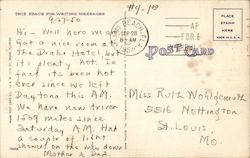 $4.00
THIS SPACE FOR WRITING MESSAGES
9-27-50
Hi - Well here we are
Got a nice room at
The Drake Hotel &
it's plenty hot. In
fact its been hot
ever since we left
Daytona this AM.
We have now driven
1569 miles since
Saturday AM. Had
a couple of light
showers on the way down
Mother & Dad.
BEACH
SEP 28
8 AM
POST CARD
PLACE
STAMP
HERE
Miss Ruth Wohlgemuth
5516 Nottington
St. Louis,
Mo.